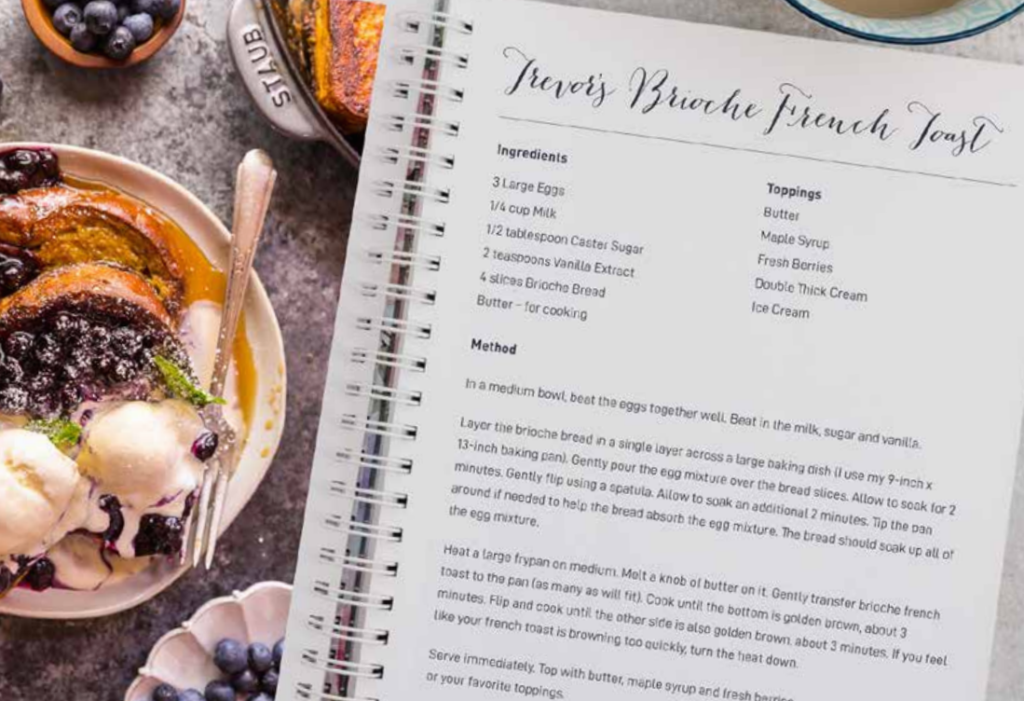 STAUB
Trevor's Brioche French Toast
Ingredients
3 Large Eggs
1/4 cup Milk
1/2 tablespoon Caster Sugar
2 teaspoons Vanilla Extract
4 slices Brioche Bread
Butter – for cooking
Toppings
Butter
Maple Syrup
Fresh Berries
Double Thick Cream
Ice Cream
Method
In a medium bowl, beat the eggs together well. Beat in the milk, sugar and vanilla.
Layer the brioche bread in a single layer across a large baking dish (I use my 9-inch x
13-inch baking pan). Gently pour the egg mixture over the bread slices. Allow to soak for 2
minutes. Gently flip using a spatula. Allow to soak an additional 2 minutes. Tip the pan
around if needed to help the bread absorb the egg mixture. The bread should soak up all of
the egg mixture.
Heat a large frypan on medium. Melt a knob of butter on it. Gently transfer brioche french
toast to the pan (as many as will fit). Cook until the bottom is golden brown, about 3
minutes. Flip and cook until the other side is also golden brown, about 3 minutes. If you feel
like your french toast is browning too quickly, turn the heat down.
Serve immediately. Top with butter, maple syrup and fresh berries
or your favorite toppings.